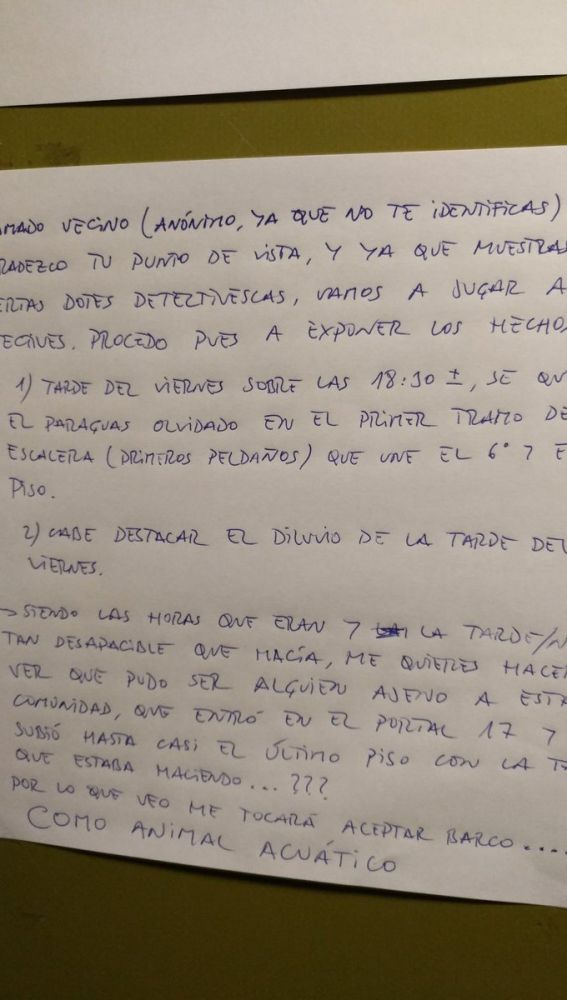 AMADO VECINO (ANÓNIMO, YA QUE NO TE IDENTIFICAS)
RADEZCO TU PUNTO DE VISTA, Y YA QUE MUESTRAS
ERTAS DOTES DETECTIVESCAS, VAMOS A JUGAR A
TECTIVES. PROCEDO PUES A EXPONER LOS HECHO
1) TARDE DEL VIERNES SOBRE LAS 18:30 ±, SE QU
EL PARAGUAS OLVIDADO EN EL PRIMER TRAMO DE
ESCALERA (PRIMEROS PELDAÑOS) QUE UNE EL 6º Y E
PISO.
2) CABE DESTACAR EL DILUVIO DE LA TARDE DEL
VIERNES.
→ SIENDO LAS HORAS QUE ERAN Y LA TARDE/N
TAN DESAPACIBLE QUE HACÍA, ME QUIERES HACE
VER QUE PUDO SER ALGUIEN AJENO A ESTA
COMUNIDAD, QUE ENTRÓ EN EL PORTAL 17 Y
SUBIÓ HASTA CASI EL ÚLTIMO PISO CON LA T
QUE ESTABA HACIENDO...???
POR LO QUE VEO ME TOCARÁ ACEPTAR BARCO....
COMO ANIMAL ACUÁTICO